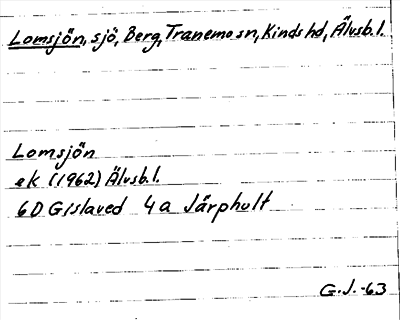 Lomsjön, sjö, Berg, Tranemo sn, Kinds hd, Älvsb. l.
Lomsjön
ek (1962) Älvsb. l.
6D Gislaved 4a Järphult
G. J. -63